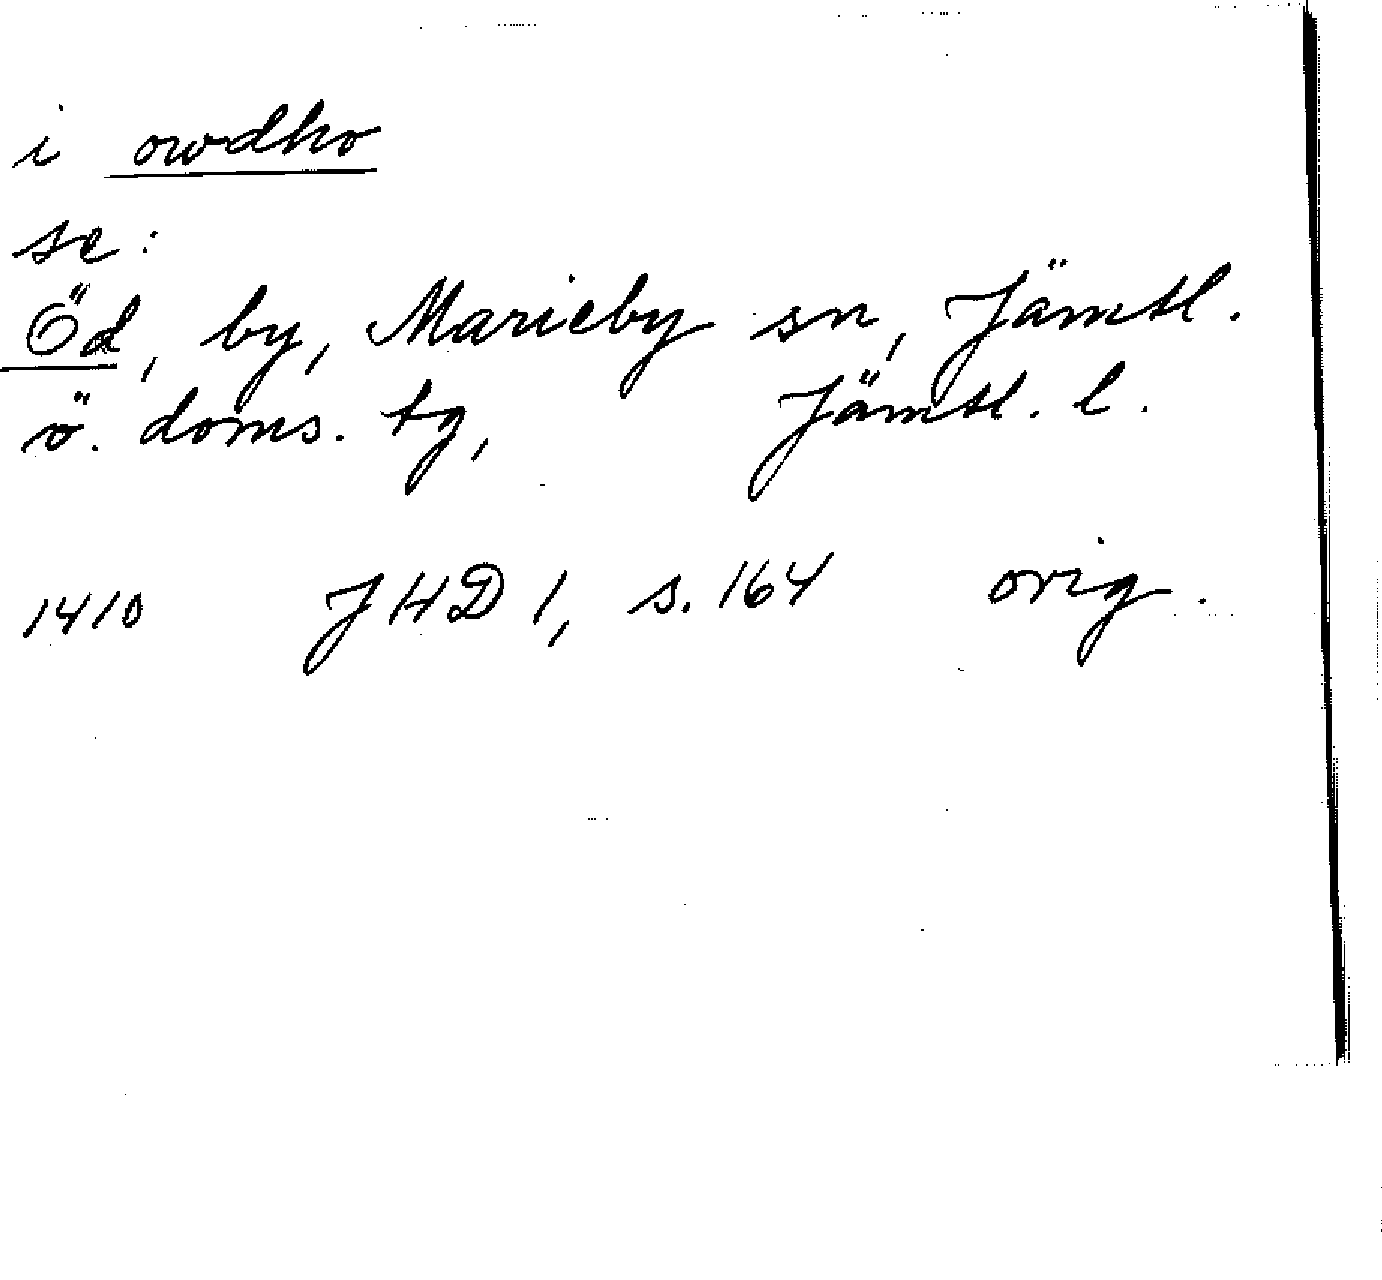 i owdho
se:
Öd, by, Marieby sn, Jämtl.
ö. doms. tg, Jämtl. l.
1410 JHD 1, s. 164 orig.